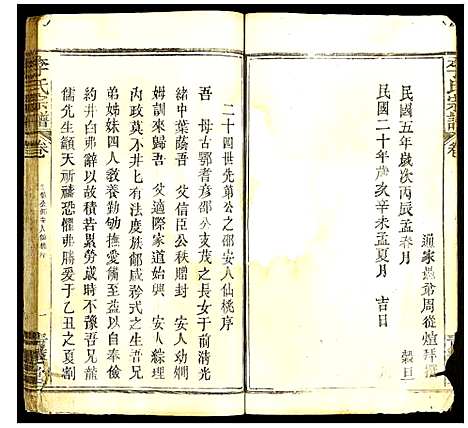 李氏宗譜
卷
通家愚弟周從煊拜撰
民國五年歲次丙辰孟春月 穀旦
民國二十年歲次辛未孟夏月 吉日
二十四世先第公之邵安人仙桃序
吾 母古鄂耆彥邵公支茂之長女于前清光
緒中葉蔭吾 父信臣公秩贈封 安人幼嫻
姆訓來歸吾 父適際家道始興 安人綜理
內政莫不井七有法度族鄰咸矜式之生吾兄
弟姊妹四人教養勤劬撫愛至益以自奉儉
約井臼弗辭以故積若累勞歲時不豫吾兄龍
儒先生籲天所禱恐懼弗勝爰于乙丑之夏割
李氏宗譜
卷
一